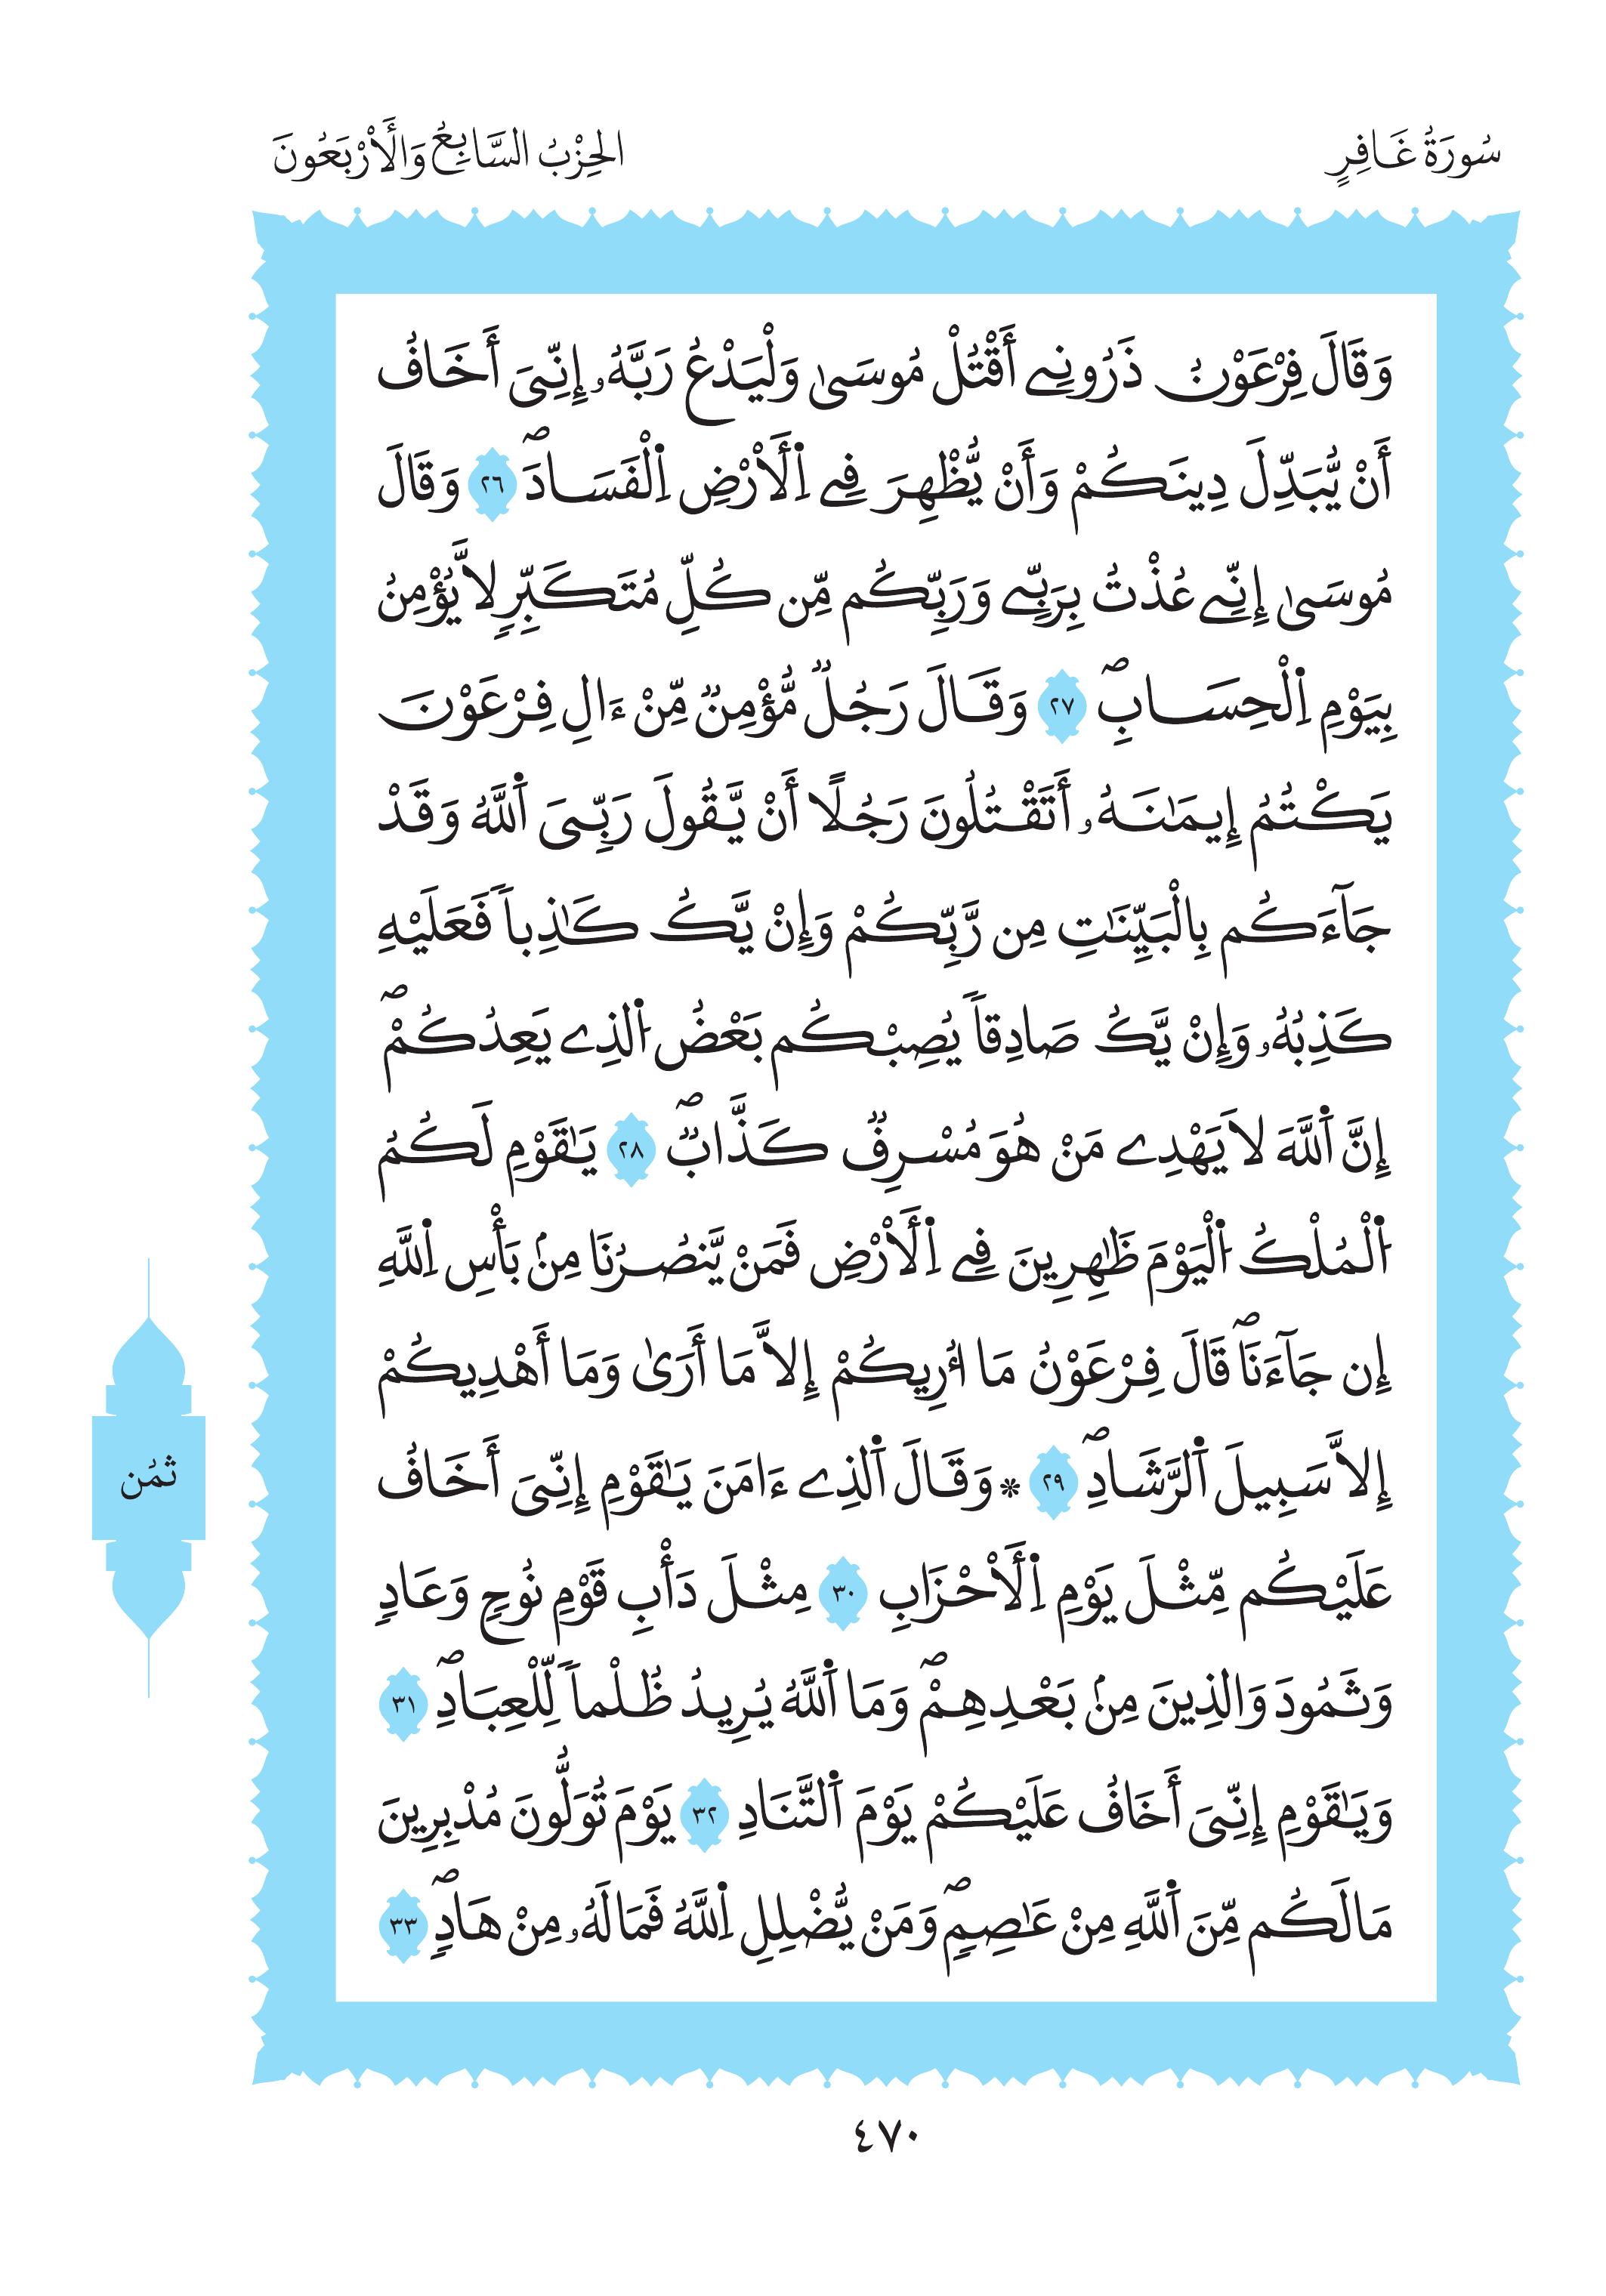 سُورَةُ غَافِرٍ
الحِزْبُ السَّابِعُ وَالْأَرْبَعُونَ
وَقَالَ فِرْعَوْنُ ذَرُونِے أَقْتُلْ مُوسَىٰ وَلْيَدْعُ رَبَّهُۥ إِنِّيَ أَخَافُ
أَنْ يُّبَدِّلَ دِينَكُمْ وَأَنْ يُّظْهِرَ فِے اِ۬لْأَرْضِ اِ۬لْفَسَادَۖ ٢٦ وَقَالَ
مُوسَىٰ إِنِّے عُذْتُ بِرَبِّے وَرَبِّكُم مِّن كُلِّ مُتَكَبِّرٖ لَّا يُؤْمِنُ
بِيَوْمِ اِ۬لْحِسَابِۖ ٢٧ وَقَالَ رَجُلٞ مُّؤْمِنٞ مِّنْ ءَالِ فِرْعَوْنَ
يَكْتُمُ إِيمَٰنَهُۥ أَتَقْتُلُونَ رَجُلًا أَنْ يَّقُولَ رَبِّيَ اَ۬للَّهُ وَقَدْ
جَآءَكُم بِالْبَيِّنَٰتِ مِن رَّبِّكُمْ وَإِنْ يَّكُ كَٰذِباٗ فَعَلَيْهِ
كَذِبُهُۥ وَإِنْ يَّكُ صَادِقاٗ يُصِبْكُم بَعْضُ اُ۬لذِے يَعِدُكُمْۖ
إِنَّ اَ۬للَّهَ لَا يَهْدِے مَنْ هُوَ مُسْرِفٞ كَذَّابٞۖ ٢٨ يَٰقَوْمِ لَكُمُ
اُ۬لْمُلْكُ اُ۬لْيَوْمَ ظَٰهِرِينَ فِے اِ۬لْأَرْضِ فَمَنْ يَّنصُرُنَا مِنۢ بَأْسِ اِ۬للَّهِ
إِن جَآءَنَاۖ قَالَ فِرْعَوْنُ مَا أُرِيكُمْ إِلَّا مَا أَرَىٰ وَمَا أَهْدِيكُمْ
إِلَّا سَبِيلَ اَ۬لرَّشَادِۖ ٢٩ * وَقَالَ اَ۬لذِے ءَامَنَ يَٰقَوْمِ إِنِّيَ أَخَافُ
عَلَيْكُم مِّثْلَ يَوْمِ اِ۬لْأَحْزَابِ ٣٠ مِثْلَ دَأْبِ قَوْمِ نُوحٖ وَعَادٖ
وَثَمُودَ وَالذِينَ مِنۢ بَعْدِهِمْۖ وَمَا اَ۬للَّهُ يُرِيدُ ظُلْماٗ لِّلْعِبَادِۖ ٣١
وَيَٰقَوْمِ إِنِّيَ أَخَافُ عَلَيْكُمْ يَوْمَ اَ۬لتَّنَادِ ٣٢ يَوْمَ تُوَلُّونَ مُدْبِرِينَ
مَا لَكُم مِّنَ اَ۬للَّهِ مِنْ عَٰصِمٖۖ وَمَنْ يُّضْلِلِ اِ۬للَّهُ فَمَا لَهُۥ مِنْ هَادٖۖ ٣٣
ثُمُن
٤٧٠